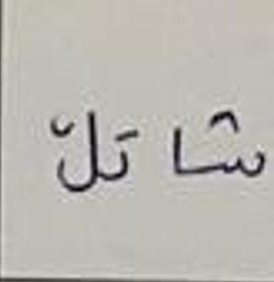 شا تلّ